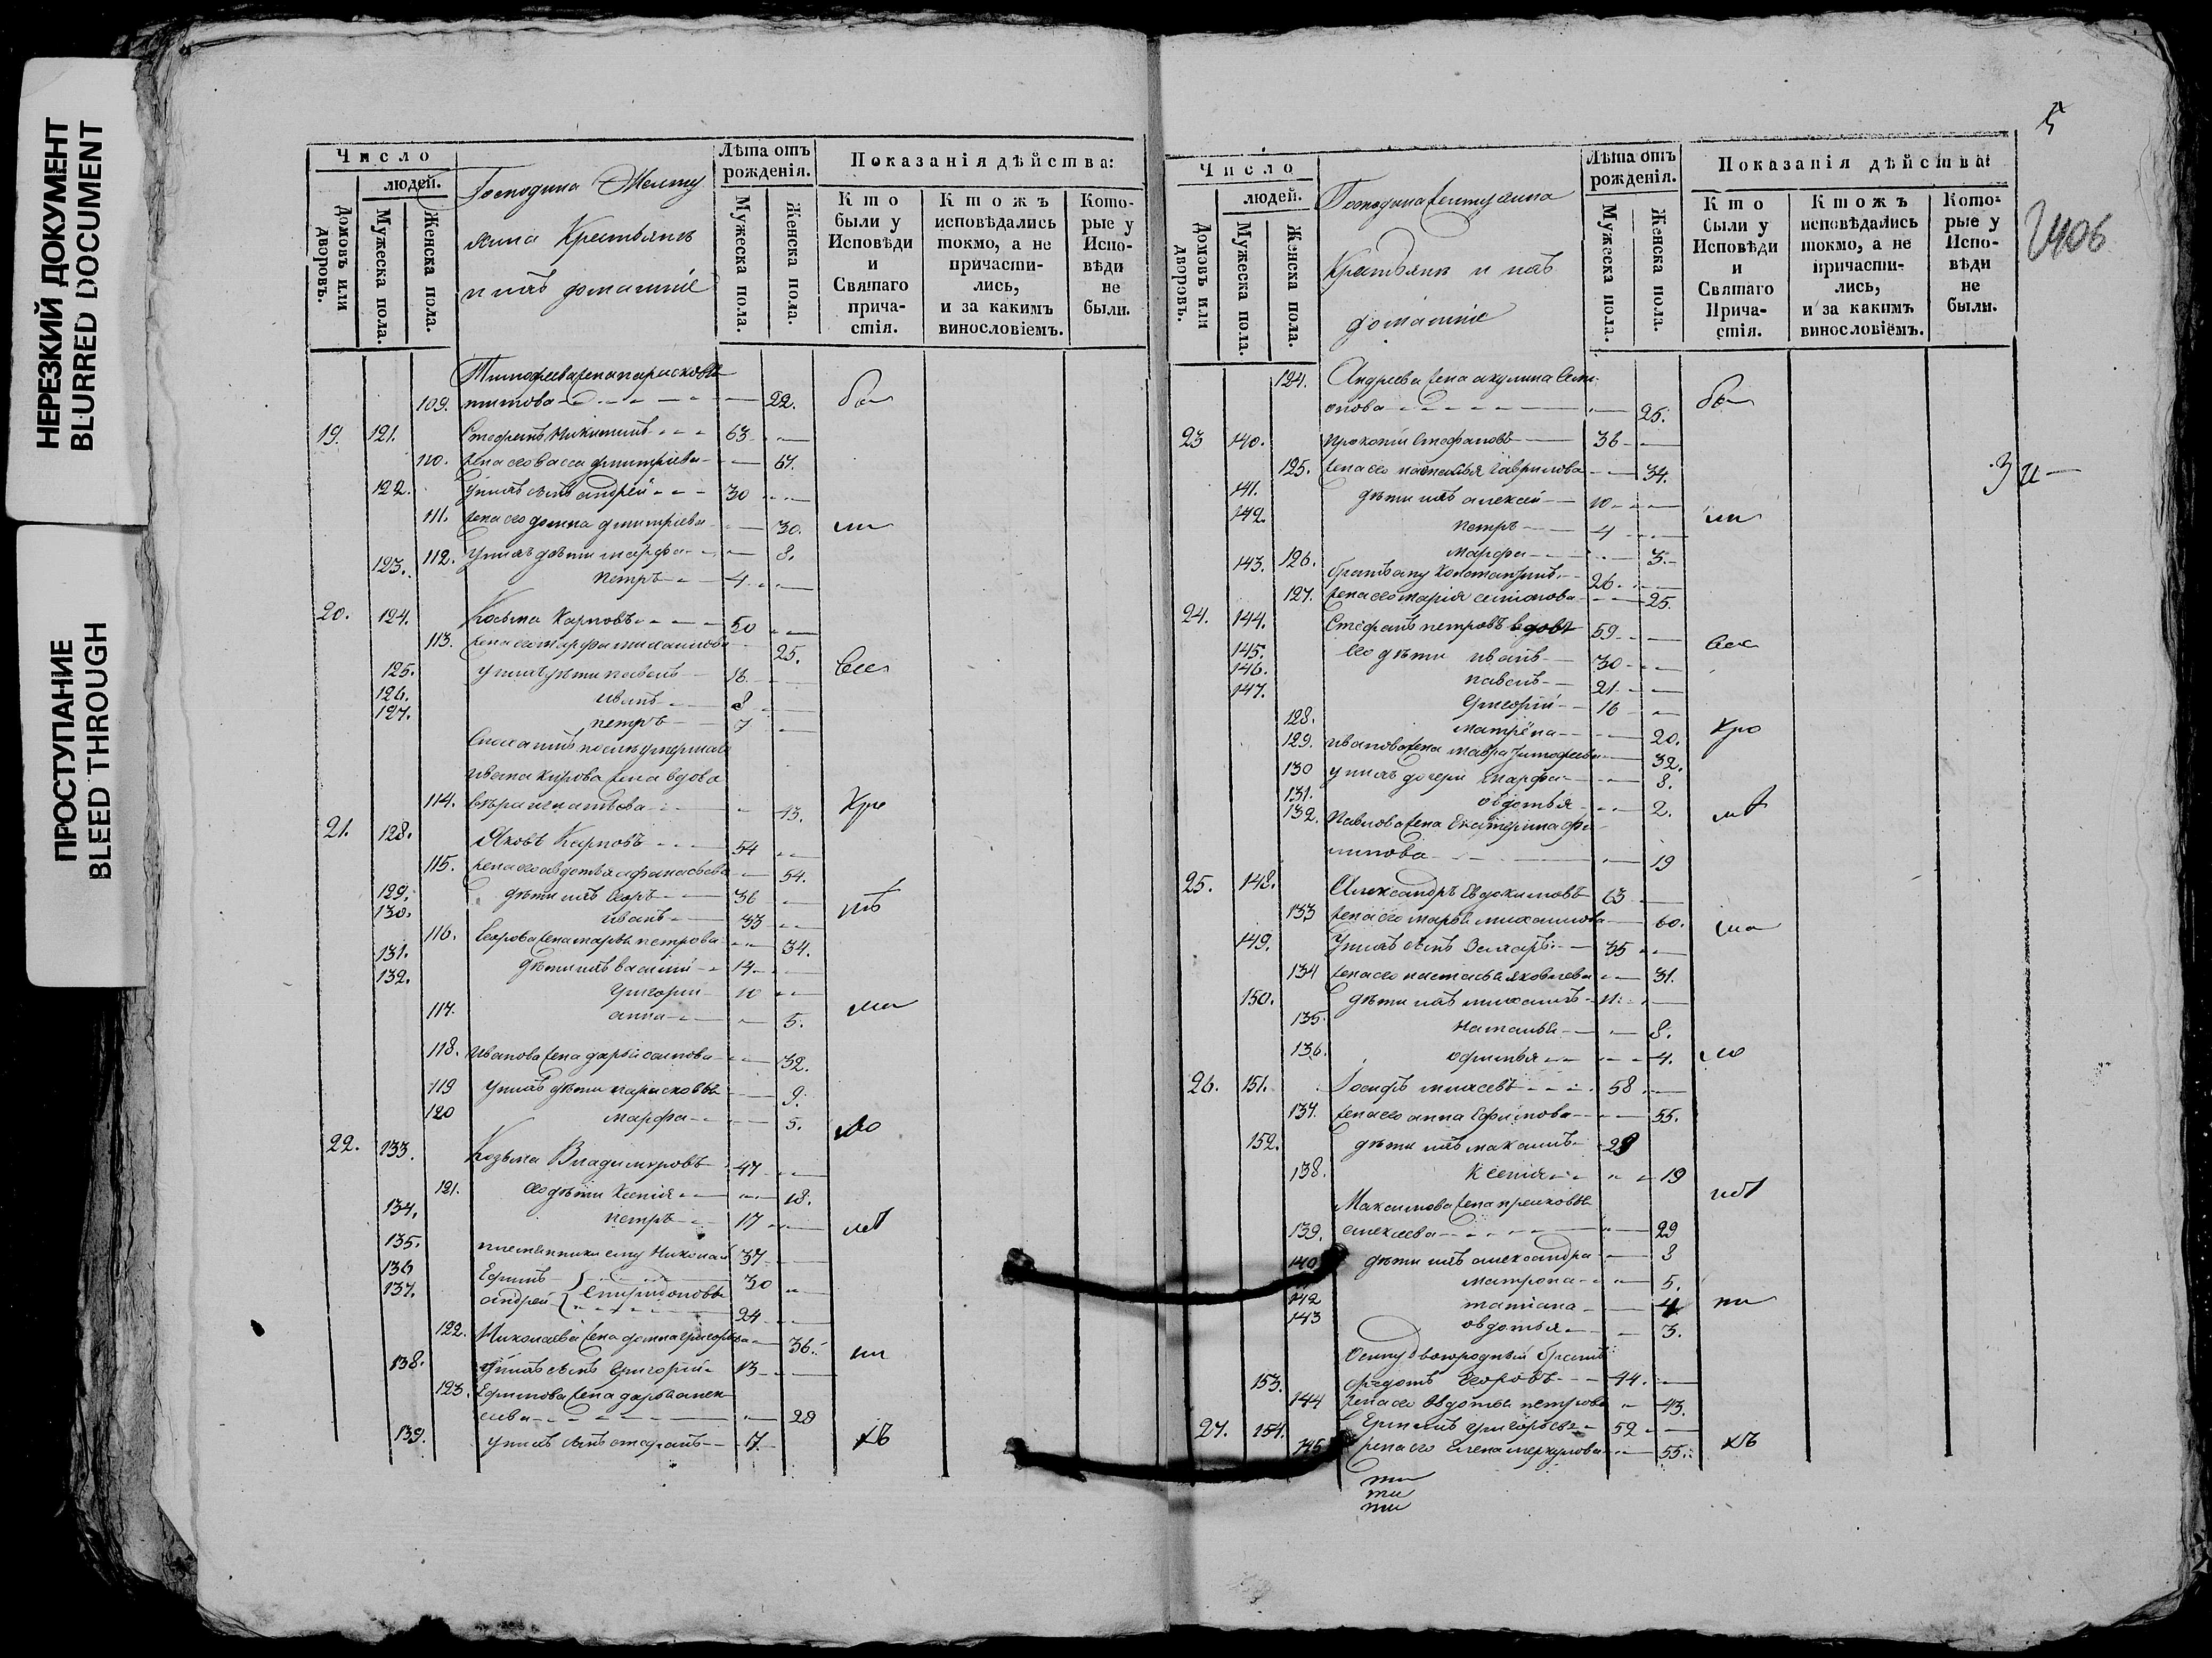 НЕРЕЗКИЙ ДОКУМЕНТ
BLURRED DOCUMENT
ПРОСТУПАНИЕ
BLEED THROUGH
Число
людей.
Домовъ или дворовъ.
Мужеска пола.
Женска пола.
Господина
Крестьянъ
и ихъ домашніе
Лѣта отъ рожденія.
Мужеска пола.
Женска пола.
Показанія дѣйства:
Кто были у Исповѣди и Святаго причастія.
Ктожъ исповѣдались токмо, а не причастились, и за какимъ винословіемъ.
Которые у Исповѣди не были.
Тимофеева жена парасковья
109. титова 22. бы
19. 121. Стефанъ Никитинъ 63
110. жена его васса дмитріева 67.
122. у нихъ сынъ андрей 30
111. жена его домна дмитріева 30. ли
112. У нихъ дѣти марфа 8.
123. петръ 4
20. 124. Косьма Карповъ 50
113. жена его марфа михаилова 25.
125. у нихъ дѣти павелъ 18 Все
126. иванъ 8
127. петръ 7
умершаго
ивана карпова жена вдова
114. вѣра игнатьева 43. Кре
21. 128. Яковъ Карповъ 54
115. жена его авдотья афанасьева 54.
129. дѣти ихъ Егоръ 36
130. иванъ 33
116. Егорова жена марья петрова 34.
131. дѣти ихъ василій 14
132. Григорій 10
117. анна 5.
118. Иванова жена дарья 32.
119 У нихъ дѣти парасковья 9.
120 марфа 5.
22. 133. Козьма Владимеровъ 47
121. его дѣти Ксенія 18.
134. петръ 17
135. племянники ему Николай 37
136 Ефимъ 30
137. андрей Спиридоновы 24
122. Николаева жена домна григорьева 36.
138. У нихъ сынъ Григорій 13
123. Ефимова жена дарья алек
сѣева 28
139. у нихъ сынъ стефанъ 7 хъ
5
Число
людей.
Домовъ или дворовъ.
Мужеска пола.
Женска пола.
Господина
Крестьянъ и ихъ
домашніе
Лѣта отъ рожденія.
Мужеска пола.
Женска пола.
Показанія дѣйства:
Кто были у Исповѣди и Святаго Причастія.
Ктожъ исповѣдались токмо, а не причастились, и за какимъ винословіемъ.
Которые у Исповѣди не были.
124. Андреева жена акулина Семи
онова 25. бы
23 140. прокопій Стефановъ 36
125. жена его наталья гаврилова 34.
141. дѣти ихъ алексѣй 10
142. петръ 4 ли
126. марфа 3
143. братъ ему Константинъ 26
127. жена его марія семіонова 25.
24. 144. Стефанъ петровъ вдовъ 59
145. его дѣти иванъ 30 Все
146. павелъ 21
147. Григорій 16
128. матрёна 20. Кре
129. иванова жена мавра тимофеева 32.
130 у нихъ дочери Марфа 8.
131. овдотья 2.
132. Павлова жена Екатерина фи
липова 19
25. 148. Александръ Евдокимовъ 63
133 жена его марья михаилова 60.
149. У нихъ сынъ Захаръ 35
134 жена его настасья яковлева 31.
150. дѣти ихъ михаилъ 11
135. Наталья 8.
136. офимья 4.
26. 151. Іосифъ моисѣевъ 58
137. жена его анна Ефимова 55.
152. дѣти ихъ максимъ 28
138. Ксенія 19
Максимова жена прасковья
139. алексеева 29
140 дѣти ихъ александра 8
матрона 5.
142 татіана 4
143 овдотья 3.
Осипу двоюродный братъ
153. федотъ Егоровъ 44.
144 жена его Овдотья петрова 43.
27. 154. Ермилъ Григорьевъ 52
145 жена его Елена меркулова 55. хъ